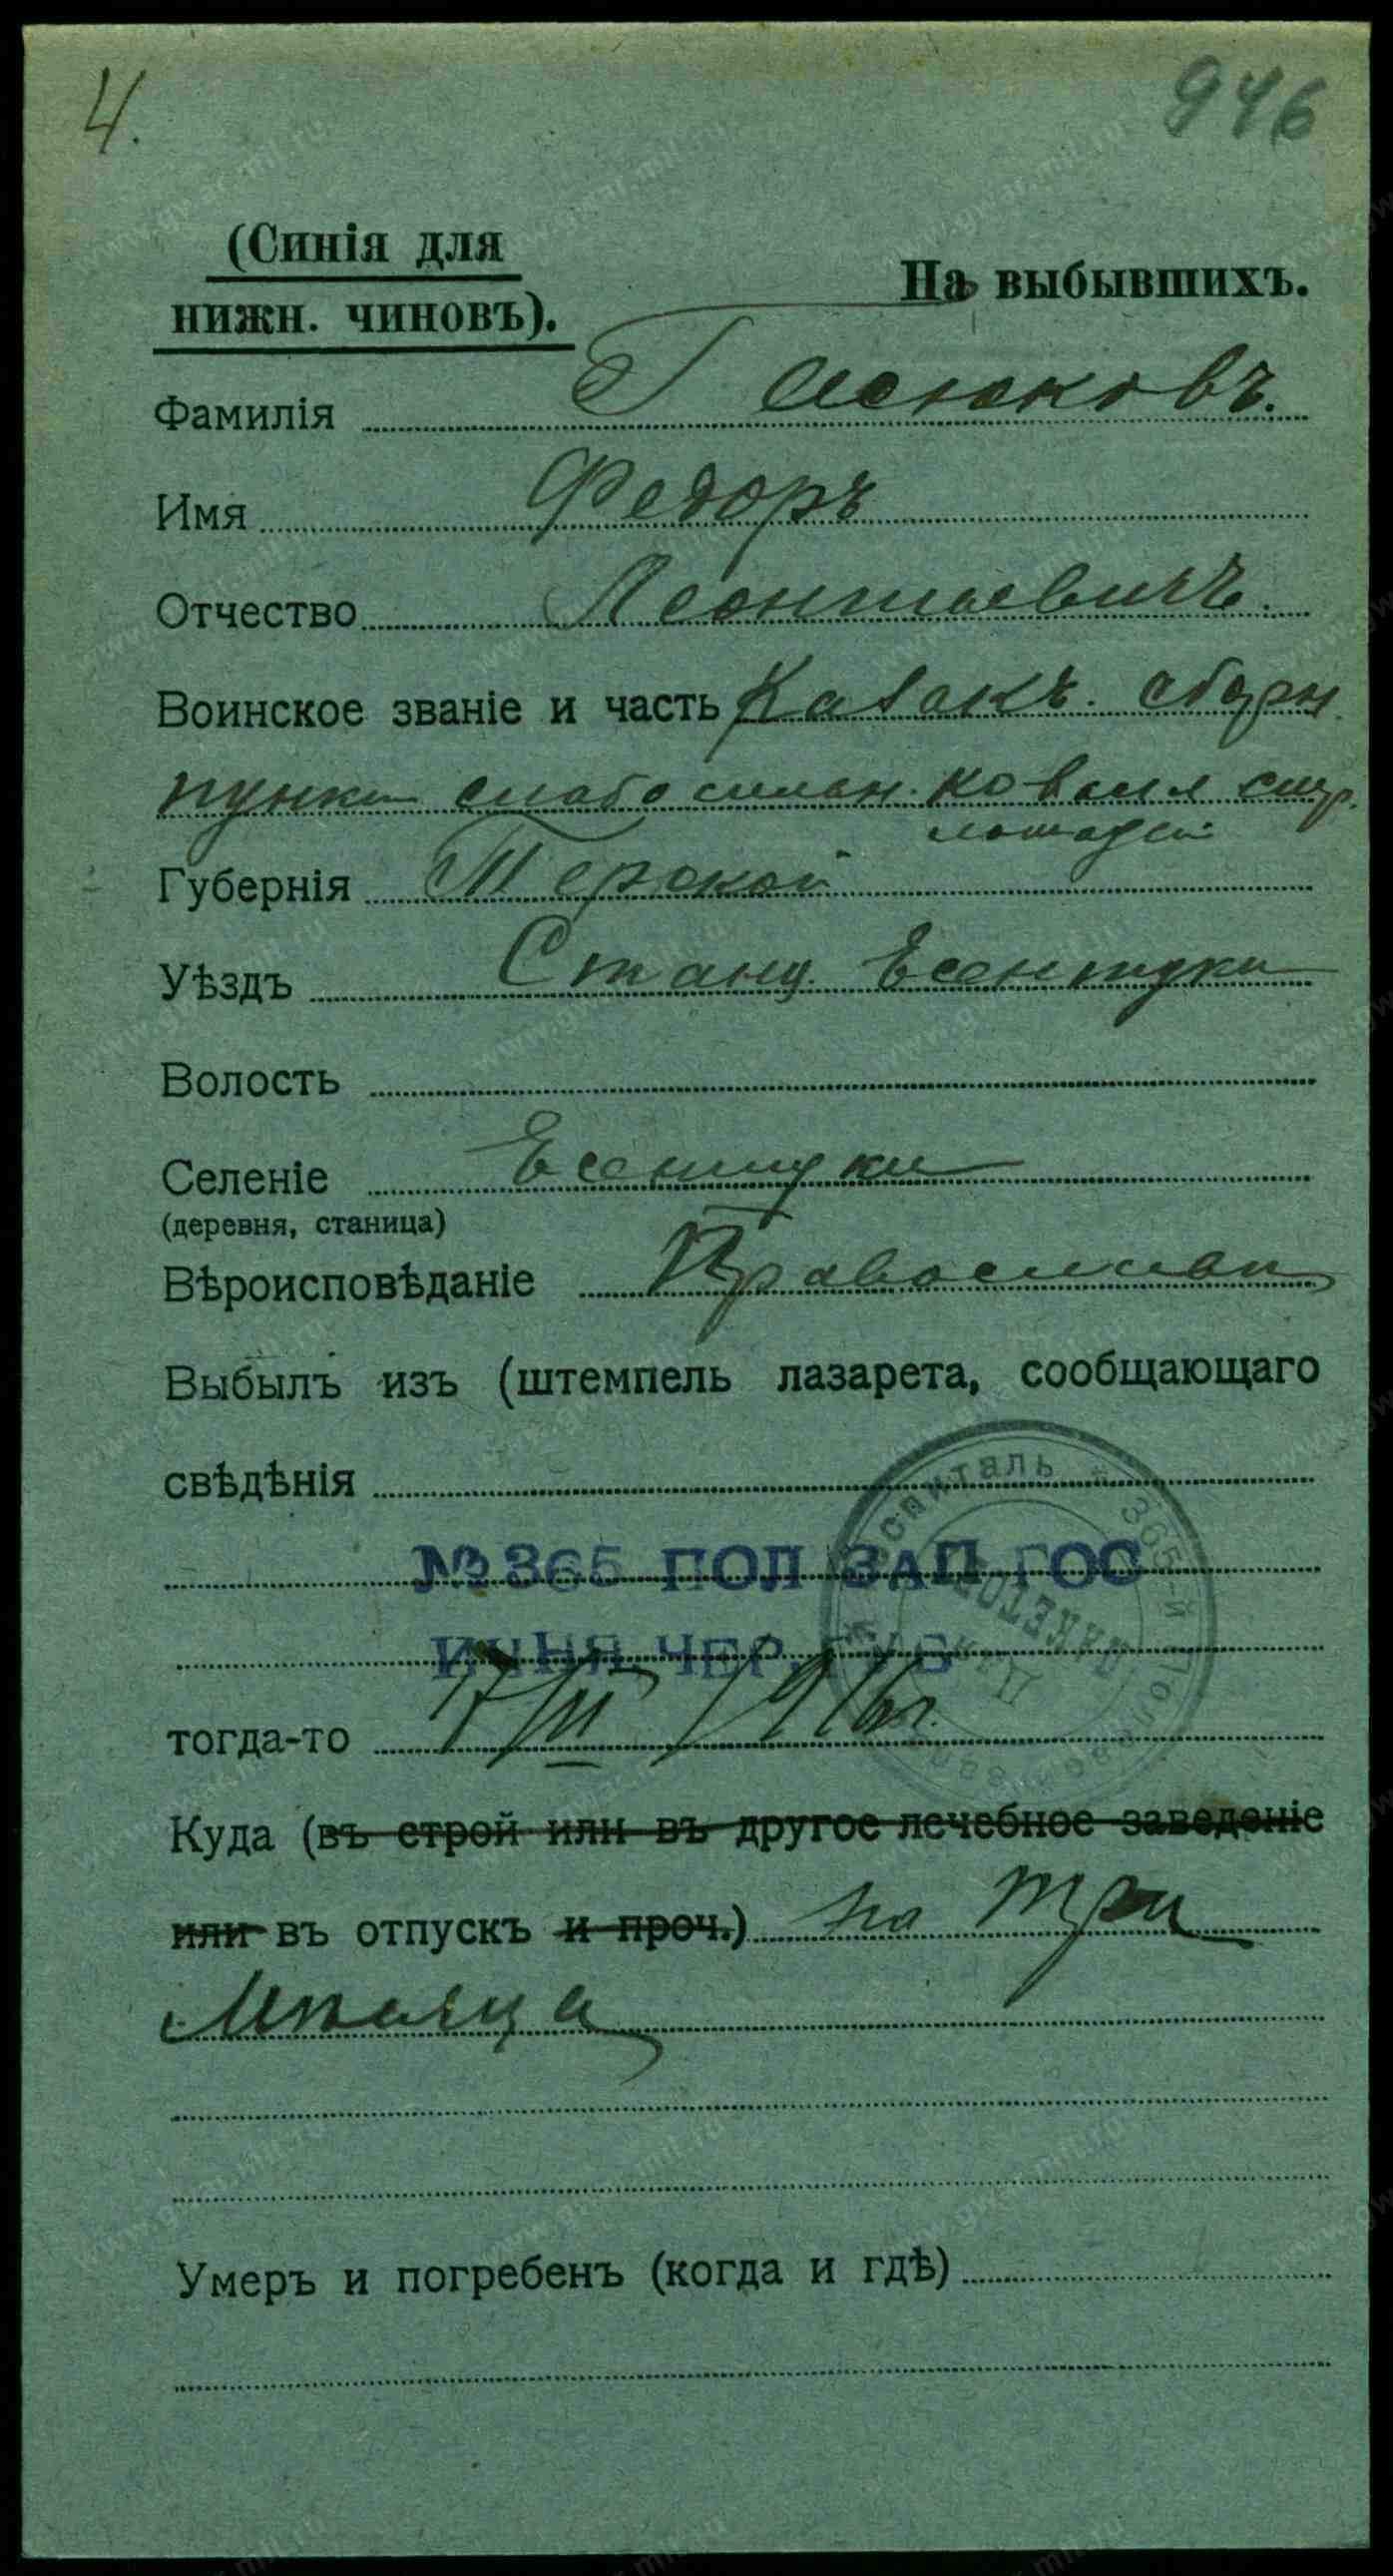 4.
946
(Синія для
нижн. чиновъ).
На выбывшихъ.
Фамилія Гасюковъ.
Имя Федоръ
Отчество Леонтьевичъ.
Воинское званіе и часть Казакъ. сборн.
пункт слабосильн.
лошадей
Губернія Терской
Уѣздъ Станц. Есентуки
Волость
Селеніе Есентуки
(деревня, станица)
Вѣроисповѣданіе Православн
Выбылъ изъ (штемпель лазарета, сообщающаго
свѣдѣнія
№ 365 ПОЛ ЗАП ГОС
ИЧНЯ ЧЕР. ГУБ
тогда-то 17/III 1916 г.
Куда (въ строй или въ другое лечебное заведеніе
или въ отпускъ и проч.) на три
Мѣсяца
Умеръ и погребенъ (когда и гдѣ)